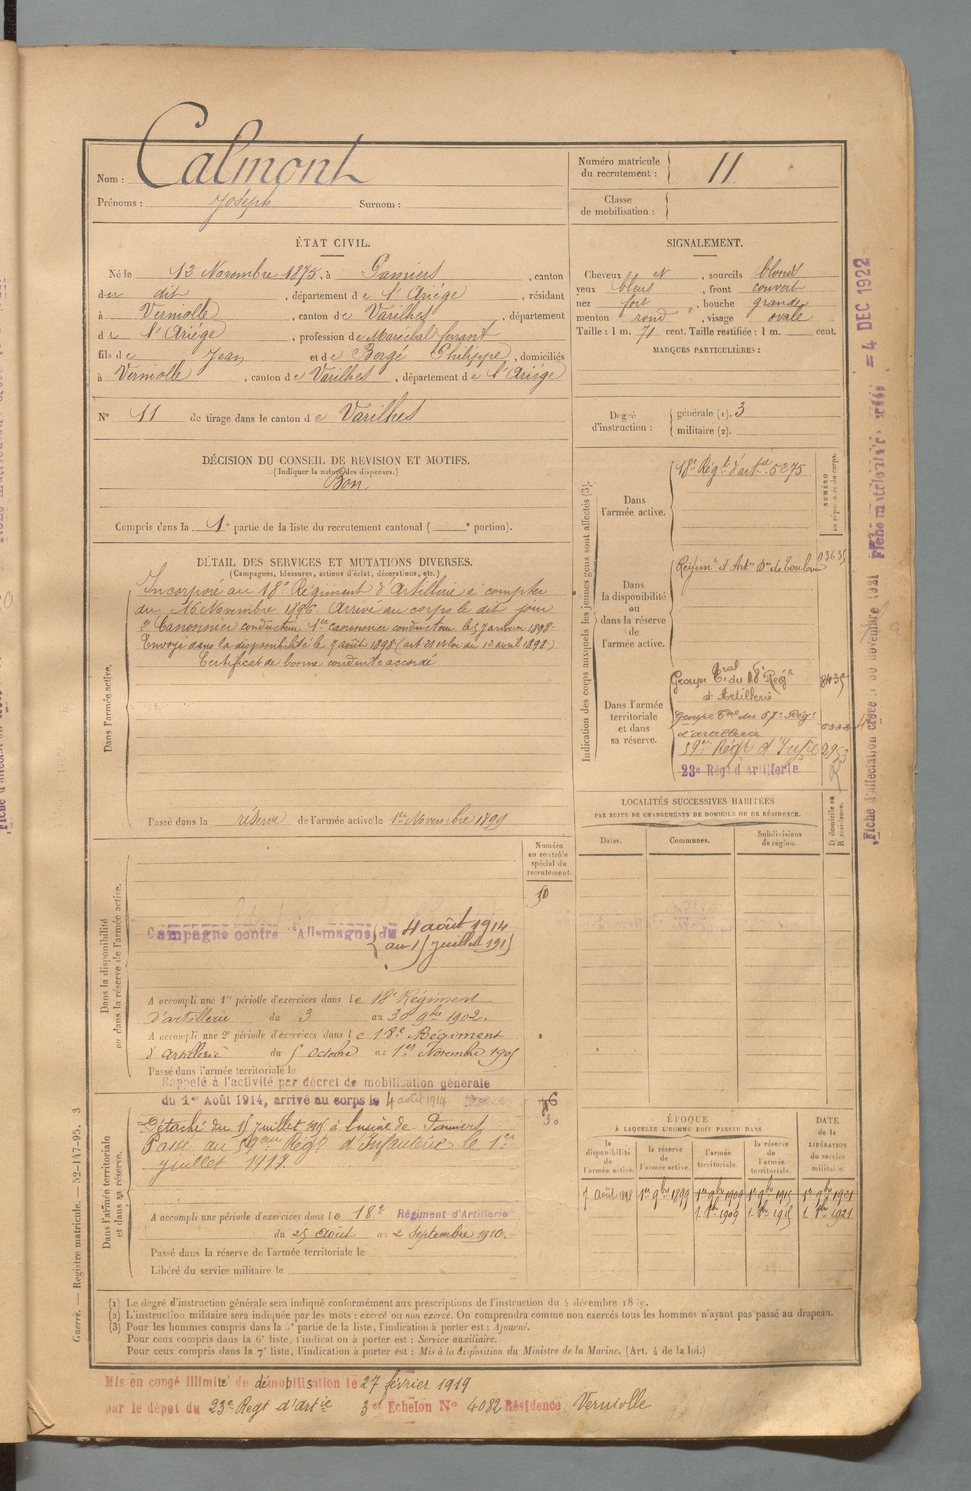 Nom : Calmont
Prénoms : Joseph Surnom :
Numéro matricule du recrutement : 11
Classe de mobilisation :
ÉTAT CIVIL.
Né le 13 Novembre 1875, à Pamiers, canton
du dit, département de l'Ariége, résidant
à Verniolle, canton de Varilhes, département
de l'Ariége, profession de Maréchal ferrant
fils de Jean et de Bergé Philippe, domiciliés
à Verniolle, canton de Varilhes, département de l'Ariége
N° 11 de tirage dans le canton de Varilhes
SIGNALEMENT.
Cheveux N, sourcils blonds
yeux bleus, front couvert
nez fort, bouche grande
menton rond, visage ovale
Taille : 1 m. 71 cent. Taille rectifiée : 1 m. cent.
MARQUES PARTICULIÈRES :
Degré d'instruction : générale (1). 3
militaire (2).
DÉCISION DU CONSEIL DE REVISION ET MOTIFS.
(Indiquer la nature des dispenses.)
Bon
Compris dans la 1e partie de la liste du recrutement cantonal ( e portion).
DÉTAIL DES SERVICES ET MUTATIONS DIVERSES.
(Campagnes, blessures, actions d'éclat, décorations, etc.)
Dans l'armée active.
Incorporé au 18e Régiment d'Artillerie à compter
du 16 Novembre 1896. Arrivé au corps le dit jour
2e Canonnier conducteur 1er canonnier conducteur le 5 Janvier 1898
Envoyé dans la disponibilité le 7 août 1898 (art 21 et loi du 1er avril 1898)
Certificat de bonne conduite accordé
Passé dans la réserve de l'armée active le 1er Novembre 1899
Indication des corps auxquels les jeunes gens sont affectés (3).
NUMÉRO au répertoire du corps.
Dans l'armée active.
18e Régt d'artie 5275
Dans la disponibilité ou dans la réserve de l'armée active.
Dans l'armée territoriale et dans sa réserve.
Groupe Tral du 18e Régt
d'Artillerie
Groupe du 57e Régt
d'artillerie
59e Régt d'Infie 2953
23e Régt d'Artillerie
LOCALITÉS SUCCESSIVES HABITÉES
PAR SUITE DE CHANGEMENTS DE DOMICILE OU DE RÉSIDENCE.
D domicile ou R résidence.
Dates. Communes. Subdivisions de région.
Numéro au contrôle spécial du recrutement.
50
Dans la disponibilité ou dans la réserve de l'armée active.
Campagne contre l'Allemagne du 4 août 1914
au 15 juillet 1915
A accompli une 1re période d'exercices dans le 18e Régiment
d'artillerie du 3 au 30 9bre 1902.
A accompli une 2e période d'exercices dans le 18e Régiment
d'artillerie du 5 octobre au 1er Novembre 1905
Passé dans l'armée territoriale le
Rappelé à l'activité par décret de mobilisation générale
du 1er Août 1914, arrivé au corps le 4 août 1914
Dans l'armée territoriale et dans sa réserve.
Détaché du 15 juillet 1915 à l'usine de Pamiers
Passé au 59eme Régt d'Infanterie le 1er
juillet 1917.
A accompli une période d'exercices dans le 18e Régiment d'Artillerie
du 25 Août au 2 Septembre 1910.
Passé dans la réserve de l'armée territoriale le
Libéré du service militaire le
ÉPOQUE
À LAQUELLE L'HOMME DOIT PASSER DANS
la disponibilité de l'armée active. la réserve de l'armée active. l'armée territoriale. la réserve de l'armée territoriale.
DATE de la LIBÉRATION du service militaire.
7 Août 1898 1er 9bre 1899 1er 9bre 1909 1er 9bre 1915 1er 9bre 1921
(1) Le degré d'instruction générale sera indiqué conformément aux prescriptions de l'instruction du 4 décembre 1889.
(2) L'instruction militaire sera indiquée par les mots : exercé ou non exercé. On comprendra comme non exercés tous les hommes n'ayant pas passé au drapeau.
(3) Pour les hommes compris dans la 5e partie de la liste, l'indication à porter est : Ajourné.
Pour ceux compris dans la 6e liste, l'indication à porter est : Service auxiliaire.
Pour ceux compris dans la 7e liste, l'indication à porter est : Mis à la disposition du Ministre de la Marine. (Art. 4 de la loi.)
Mis en congé illimité de démobilisation le 27 février 1919
par le dépôt du 23e Regt d'Artie 3e Echelon N° 4082 Résidence Verniolle
Guerre. — Registre matricule. — 52-147-95. 3
Fiche d'affectation créée le 30 novembre 1921
Fiche matricule créée = 4 DEC 1922